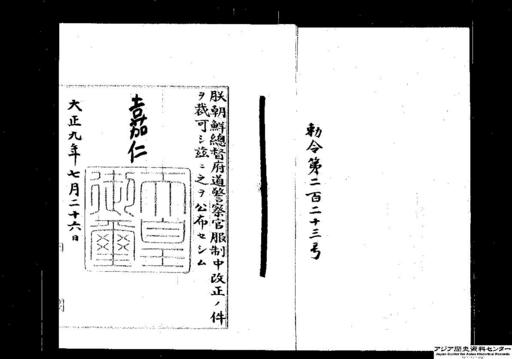 勅令第二百二十三号
朕朝鮮總督府道警察官服制中改正ノ件
ヲ裁可シ茲ニ之ヲ公布セシム
嘉仁
天皇御璽
大正九年七月二十六日
アジア歴史資料センター
Japan Center for Asian Historical Records